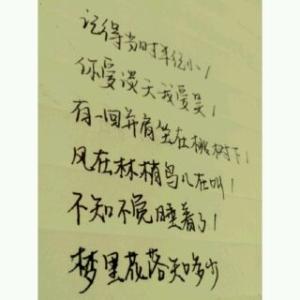 记得当时年纪小/
你爱谈天我爱笑/
有一回并肩坐在桃树下/
风在林梢鸟儿在叫/
不知不觉睡着了/
梦里花落知多少